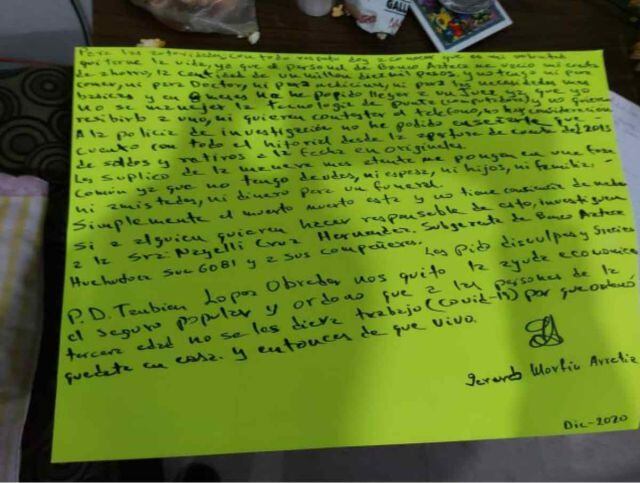 Para las autoridades, con todo respeto doy a conocer que es mi voluntad
quitarme la vida, ya que el personal de Banco Azteca me vacio mi cuenta
de ahorro, la cantidad de un millon diez mil pesos, y no tengo ni para
comer, ni para Doctor, ni para medicinas, ni para las necesidades mas
basicas y en me he podido llegar a un juez ya que yo
no se manejar la tecnologia de punta (computadoras) y no quieren
recibirlo a uno, ni quieren contestar el telefono, no hay consideracion
A la policia de investigación no he podido que
cuento con todo el hitorial desde la apertura de cuenta del 2015
de saldos y retiros a la fecha en originales.
Les suplico de la manera mas atenta me pongan en una fosa
común ya que no tengo deudos, ni esposa, ni hijos, ni familia,
ni amistades, ni dinero para un funeral.
Simplemente el muerto muerto esta y no tiene conciencia de nada
si a alguien quieren hacer responsable de esto, investiguen
a la Sra. Nayelli Cruz Hernandez. Subgerente de Banco Azteca
Huehuetoca Suc 6081 y a sus compañeros.
Les Pido disculpas y Gracias
P.D. Tambien Lopez Obrador nos quito la ayuda economica
el seguro popular y ordeno que a las personas de la
tercera edad no se les diera trabajo (covid-19) por que ordeno
quedate en casa. y entonces de que vivo.
Gerardo
Dic-2020
GALL